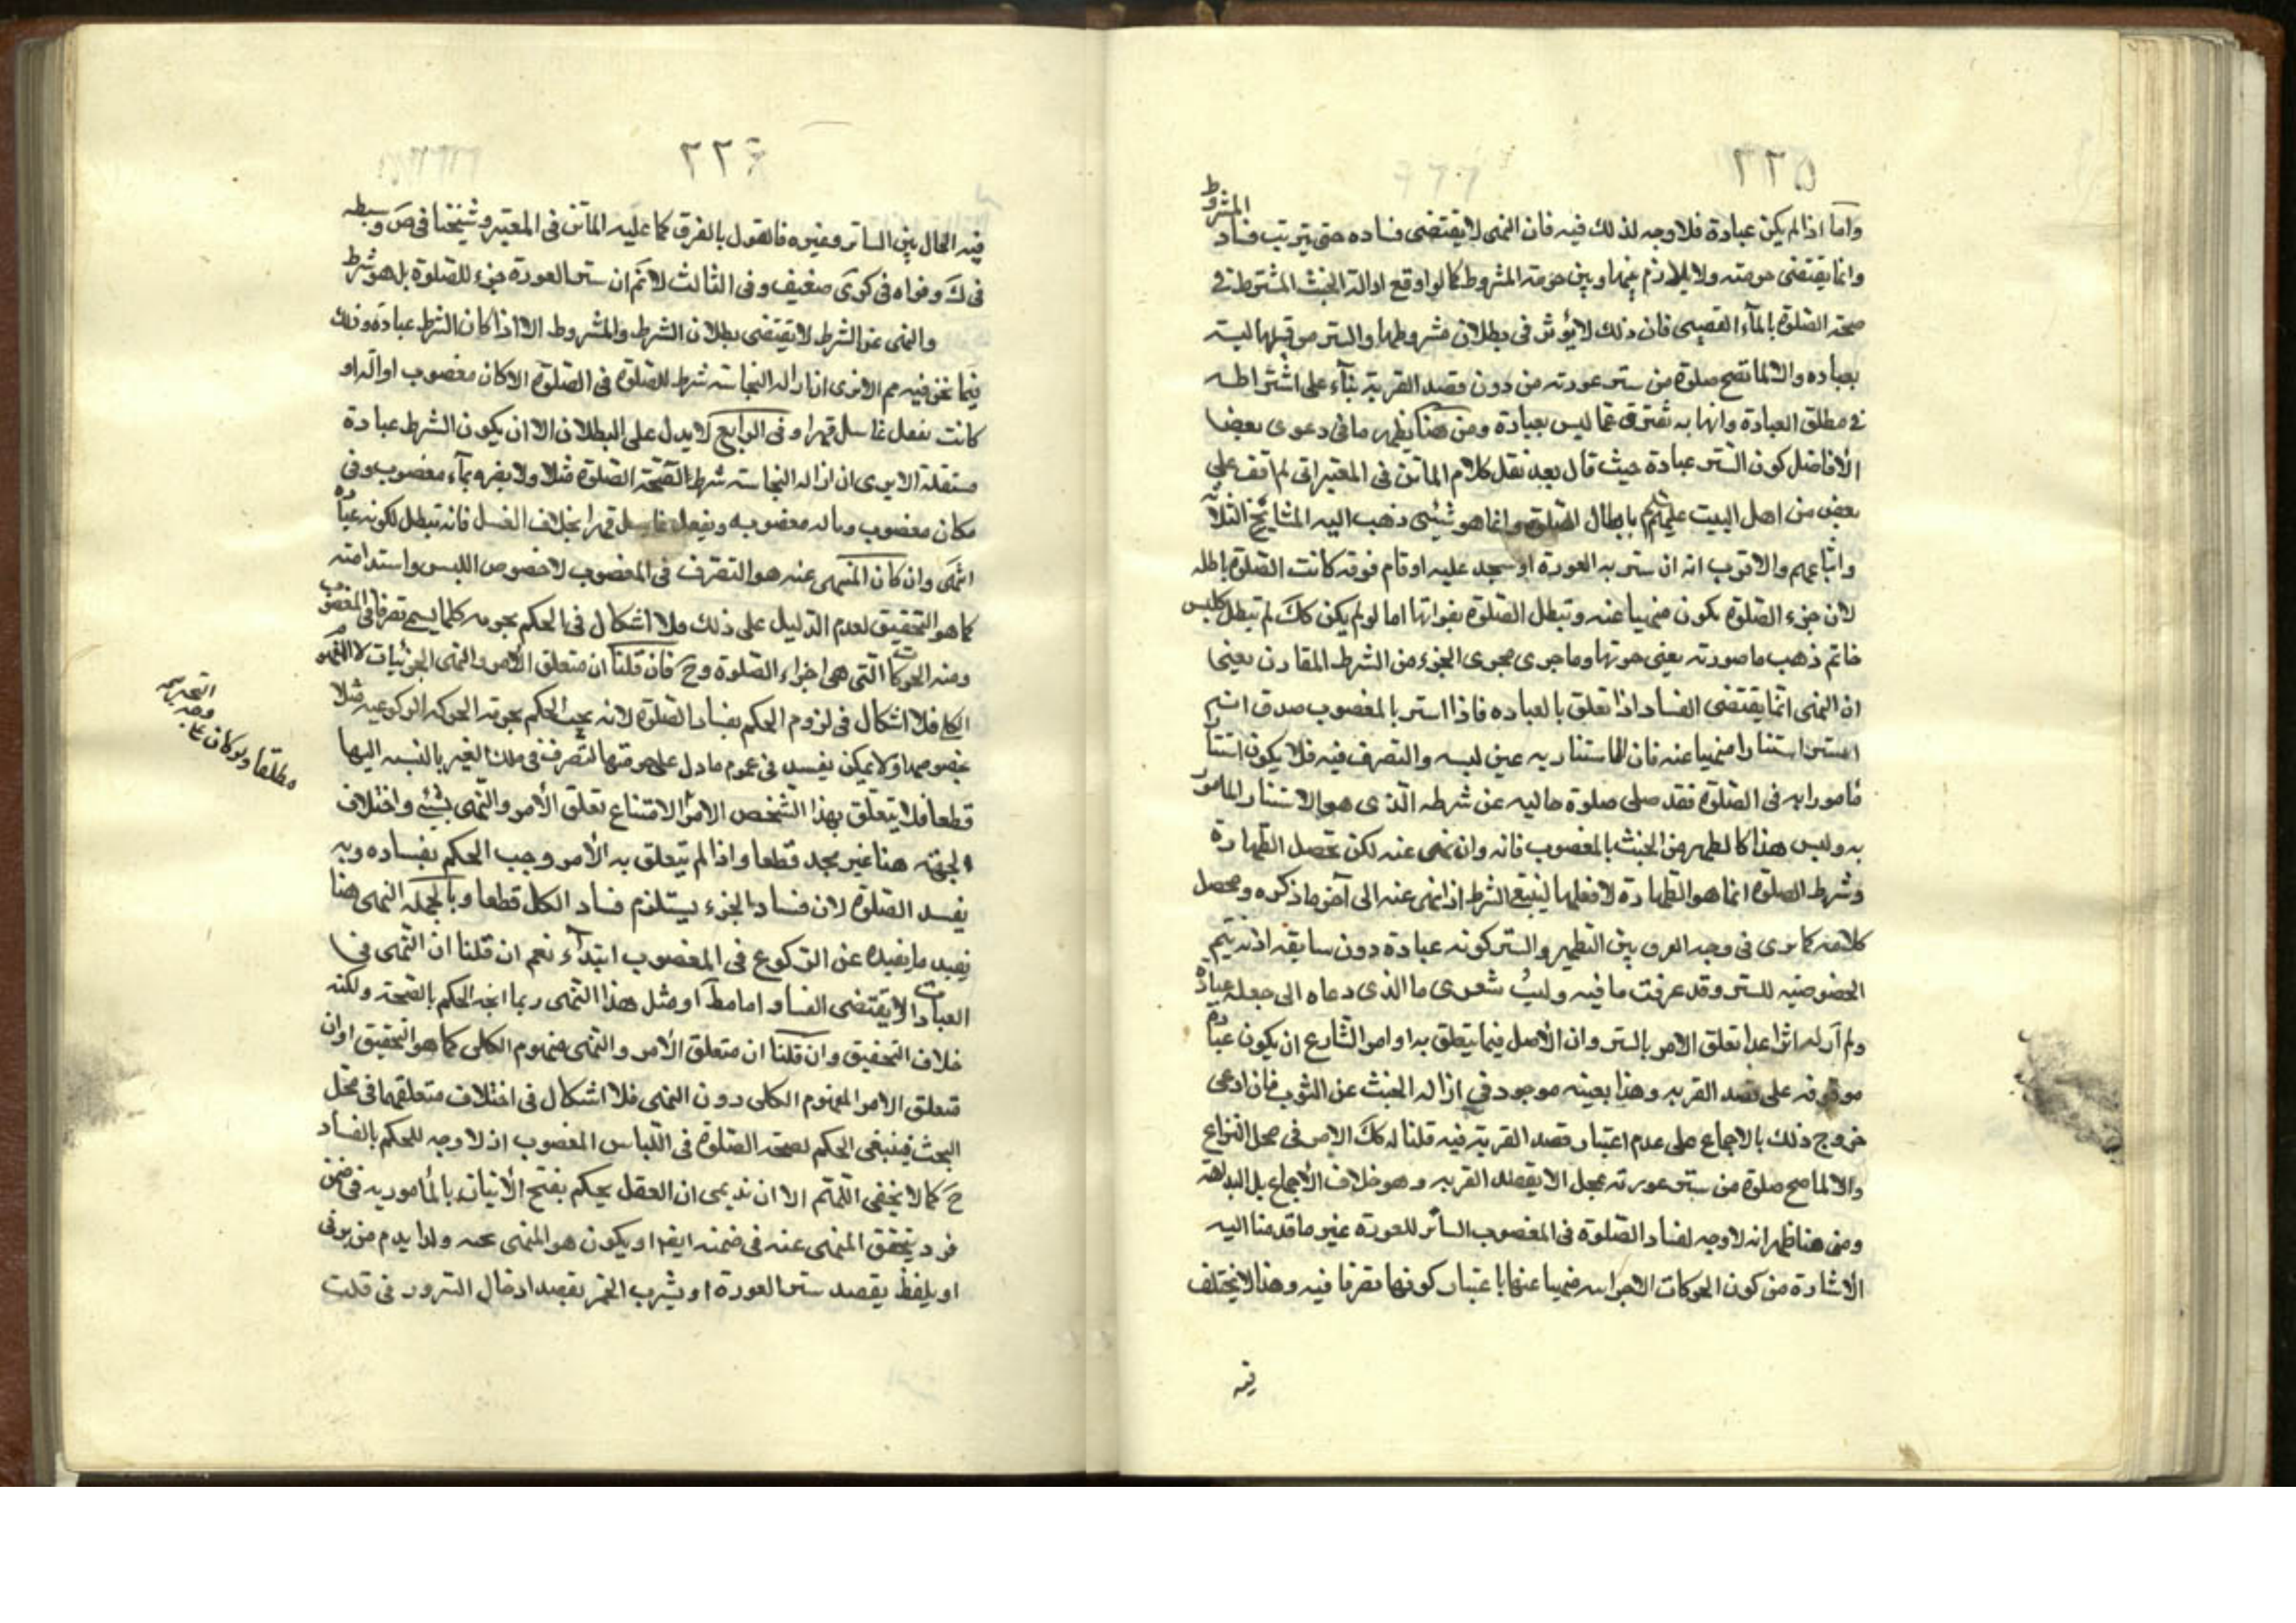 ٢٢٥
واما اذا لم يكن عبادة فلا وجه لذلك فيه فان النهى لا يقتضى فساده حتى يترتب فساد المشروط
وانما يقتضى حرمته ولا تلازم بينها وبين حرمة المشروط كما لو اوقع ازالة الخبث المشترطة فى
صحة الصلوة بالماء الغصبى فان ذلك لا يؤثر فى بطلان مشروطها والستر من قبلها ليس
بعباده والا لما تصح صلوة من ستر عورته من دون قصد القربة بناء على اشتراطه
فى مطلق العبادة وانها به تفترق عما ليس بعبادة ومن هنا يظهر ما فى دعوى بعض
الأفاضل كون الستر عبادة حيث قال بعد نقل كلام الماتن فى المعتبر انى لم اقف على
نص من اهل البيت عليهم بابطال الصلوة وانما هو شيئى ذهب اليه المشايخ الثلاثة
واتباعهم والاقرب انه ان ستر به العورة او سجد عليه او قام فوقه كانت الصلوة باطله
لان جزء الصلوة يكون منهيا عنه وتبطل الصلوة بفواتها اما لو لم يكن كك لم تبطل كلبس
خاتم ذهب ما صورته يعنى حرمتها وما جرى مجرى الجزء من الشرط المقارن يعنى
ان النهى انما يقتضى الفساد اذا تعلق بالعباده فاذا استتر بالمغصوب صدق انه
استتر استتارا منهيا عنه فان الاستتار به عين لبسه والتصرف فيه فلا يكون استتارا
مأمورا به فى الصلوة فقد صلى صلوة خاليه عن شرطه الذى هو الاستتار المامور
به وليس هذا كالطهر من الخبث بالمغصوب فانه وان نهى عنه لكن تحصل الطهارة
وشرط الصلوة انما هو الطهارة لا فعلها لينتفى الشرط اذا نهى عنه الى آخر ما ذكره ومحصل
كلامه كما ترى فى وجه الفرق بين التطهير والستر كونه عبادة دون سابقه اذ به يتم
الخصوصيه للستر وقد عرفت ما فيه وليت شعرى ما الذى دعاه الى جعله عبادة
ولم أر له اثرا عدا تعلق الامر بالستر وان الأصل فيما يتعلق به اوامر الشارع ان يكون عبادة
موقوفه على قصد القربه وهذا بعينه موجود فى ازاله الخبث عن الثوب فان ادعى
خروج ذلك بالاجماع على عدم اعتبار قصد القربة فيه قلنا له كك الامر فى محل النزاع
والا لما صح صلوة من ستر عورته بمجل الا بقصد القربه وهو خلاف الأجماع بل البداهة
ومن هنا ظهر انه لا وجه لفساد الصلوة فى المغصوب الساتر للعورة غير ما قدمنا اليه
الأشارة من كون الحركات الأجزائيه منهيا عنها باعتبار كونها تصرفا فيه وهذا لا يختلف
فيه
٢٢٦
فيه الحال بين الساتر وغيره فالقول بالفرق كما عليه الماتن فى المعتبر وشيخنا فى ض وسبطه
فى ك وقواه فى كرى ضعيف وفى الثالث لا نم ان ستر العورة جزء للصلوة بل هو شرط
والنهى عن الشرط لا يقتضى بطلان الشرط والمشروط الا اذا كان الشرط عبادة وذلك
فيما نحن فيه مم الا ترى ان ازاله النجاسة شرط للصلوة فى الصلوة الاكان مغصوب او آله او
كانت بفعل غاسل قهرا وفى الرابع لا يدل على البطلان الا ان يكون الشرط عبادة
مستقله الا يرى ان ازاله النجاسة شرط لصحة الصلوة مثلا ولا يضره بماء مغصوب وفى
مكان مغصوب وباله مغصوبه وبفعل غاسل قهرا بخلاف الغسل فانه تبطل لكونه عبادة
انتهى وان كان المنهى عنه هو التصرف فى المغصوب لا خصوص اللبس واستدامته
كما هو التحقيق لعدم الدليل على ذلك فلا اشكال فى الحكم بحرمه كلما يسمى تصرفا فى المغصوب
ومنه الحركات التى هى اجزاء الصلوة وح فان قلنا ان متعلق الأمر والنهى الجزئيات لا المفهوم
الكلى فلا اشكال فى لزوم الحكم بفساد الصلوة لانه يجب الحكم بحرمة الحركه الركوعيه مثلا
بخصوصها ولا يمكن تفسد فى عموم ما دل على حرمتها التصرف فى ملك الغير بالنسبه اليها
قطعا فلا يتعلق بهذا الشخص الامر لامتناع تعلق الأمر والنهى بشيئى واختلاف
الجهة هنا غير مجد قطعا واذا لم يتعلق به الأمر وجب الحكم بفساده وبه
يفسد الصلوة لان فساد الجزء يستلزم فساد الكل قطعا وبالجمله النهى هنا
يفيد ما يفيده عن الركوع فى المغصوب ابتداء نعم ان قلنا ان النهى فى
العبادات لا يقتضى الفساد اما مطا او مثل هذا النهى ربما اتجه الحكم بالصحة ولكنه
خلاف التحقيق وان قلنا ان متعلق الأمر والنهى مفهوم الكلى كما هو التحقيق او ان
متعلق الامر المفهوم الكلى دون النهى فلا اشكال فى اختلاف متعلقهما فى محل
البحث فينبغى الحكم لصحة الصلوة فى اللباس المغصوب اذ لا وجه للحكم بالفساد
ح كما لا يخفى اللهم الا ان ندعى ان العقل يحكم بقبح الأتيان بالمأمور به فى ضمن
فرد يتحقق المنهى عنه فى ضمنه ايضا ويكون هو المنهى عنه ولذا يذم من يزنى
او يلفظ بقصد ستر العورة او يشرب الخمر بقصد ادخال السرور فى قلب
مطلقا ولو كان